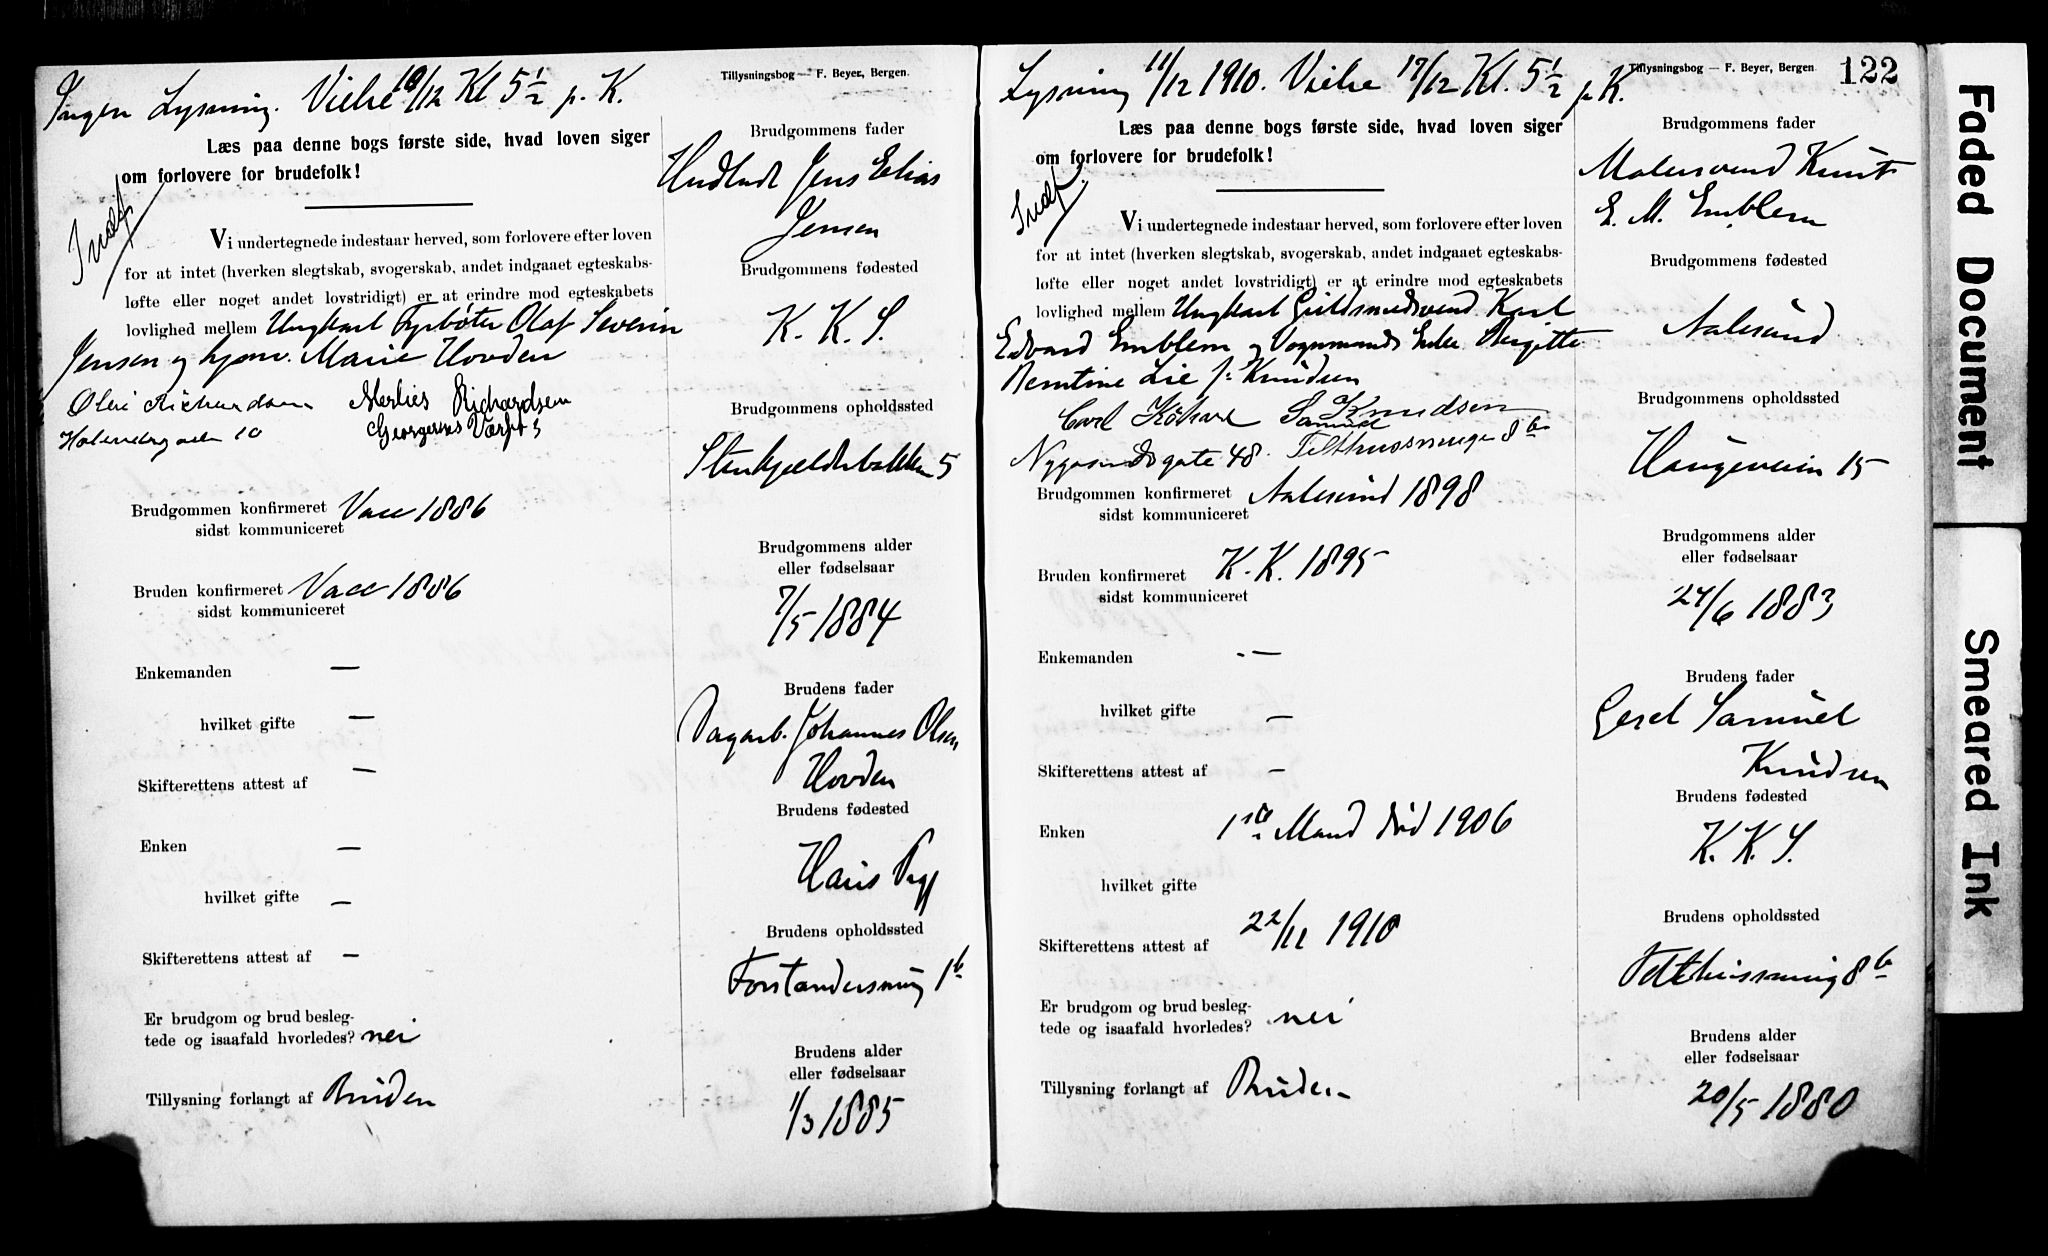 Ingen Lysning. Vielse 10/12 Kl 5 1/2 p. K.
Tillysningsbog — F. Beyer, Bergen.
Læs paa denne bogs første side, hvad loven siger
om forlovere for brudefolk!
Indf.
Vi undertegnede indestaar herved, som forlovere efter loven
for at intet (hverken slegtskab, svogerskab, andet indgaaet egteskabs-
løfte eller noget andet lovstridigt) er at erindre mod egteskabets
lovlighed mellem Ungkarl Fyrbøter Olaf Severin
Jensen og Marie Hovden
Richardsen
10
Brudgommen konfirmeret Vacc 1886
sidst kommuniceret
Bruden konfirmeret Vacc 1886
sidst kommuniceret
Enkemanden —
hvilket gifte —
Skifterettens attest af —
Enken —
hvilket gifte —
Skifterettens attest af —
Er brudgom og brud besleg-
tede og isaafald hvorledes? nei
Tillysning forlangt af Bruden
Brudgommens fader
Jens Elias
Jensen
Brudgommens fødested
K. K. S.
Brudgommens opholdssted
Stenkjælderbakken 5
Brudgommens alder
eller fødselsaar
7/5 1884
Brudens fader
Dagarb. Johannes Olsen
Hovden
Brudens fødested
Haus Pgj
Brudens opholdssted
Forstandersmug 1b
Brudens alder
eller fødselsaar
1/3 1885
Lysning 11/12 1910. Vielse 17/12 Kl. 5 1/2 p K.
Tillysningsbog — F. Beyer, Bergen.
122
Læs paa denne bogs første side, hvad loven siger
om forlovere for brudefolk!
Indf.
Vi undertegnede indestaar herved, som forlovere efter loven
for at intet (hverken slegtskab, svogerskab, andet indgaaet egteskabs-
løfte eller noget andet lovstridigt) er at erindre mod egteskabets
lovlighed mellem Ungkarl Guldsmedsvend Karl
Edvard Emblem og Vognmands Enke Birgitte
Berntine Lie f. Knudsen
Carl Samuel Knudsen
Nygaardsgate 48. Felthussmuget 8b
Brudgommen konfirmeret Aalesund 1898
sidst kommuniceret
Bruden konfirmeret K. K. 1895
sidst kommuniceret
Enkemanden —
hvilket gifte —
Skifterettens attest af —
Enken 1ste Mand død 1906
hvilket gifte
Skifterettens attest af 22/11 1910
Er brudgom og brud besleg-
tede og isaafald hvorledes? nei
Tillysning forlangt af Bruden
Brudgommens fader
Malersvend Knut
E. M. Emblem
Brudgommens fødested
Aalesund
Brudgommens opholdssted
Haugeveien 15
Brudgommens alder
eller fødselsaar
24/6 1883
Brudens fader
Gesel Samuel
Knudsen
Brudens fødested
K. K. S.
Brudens opholdssted
Felthussmug 8b
Brudens alder
eller fødselsaar
20/5 1880
Faded Document
Smeared Ink